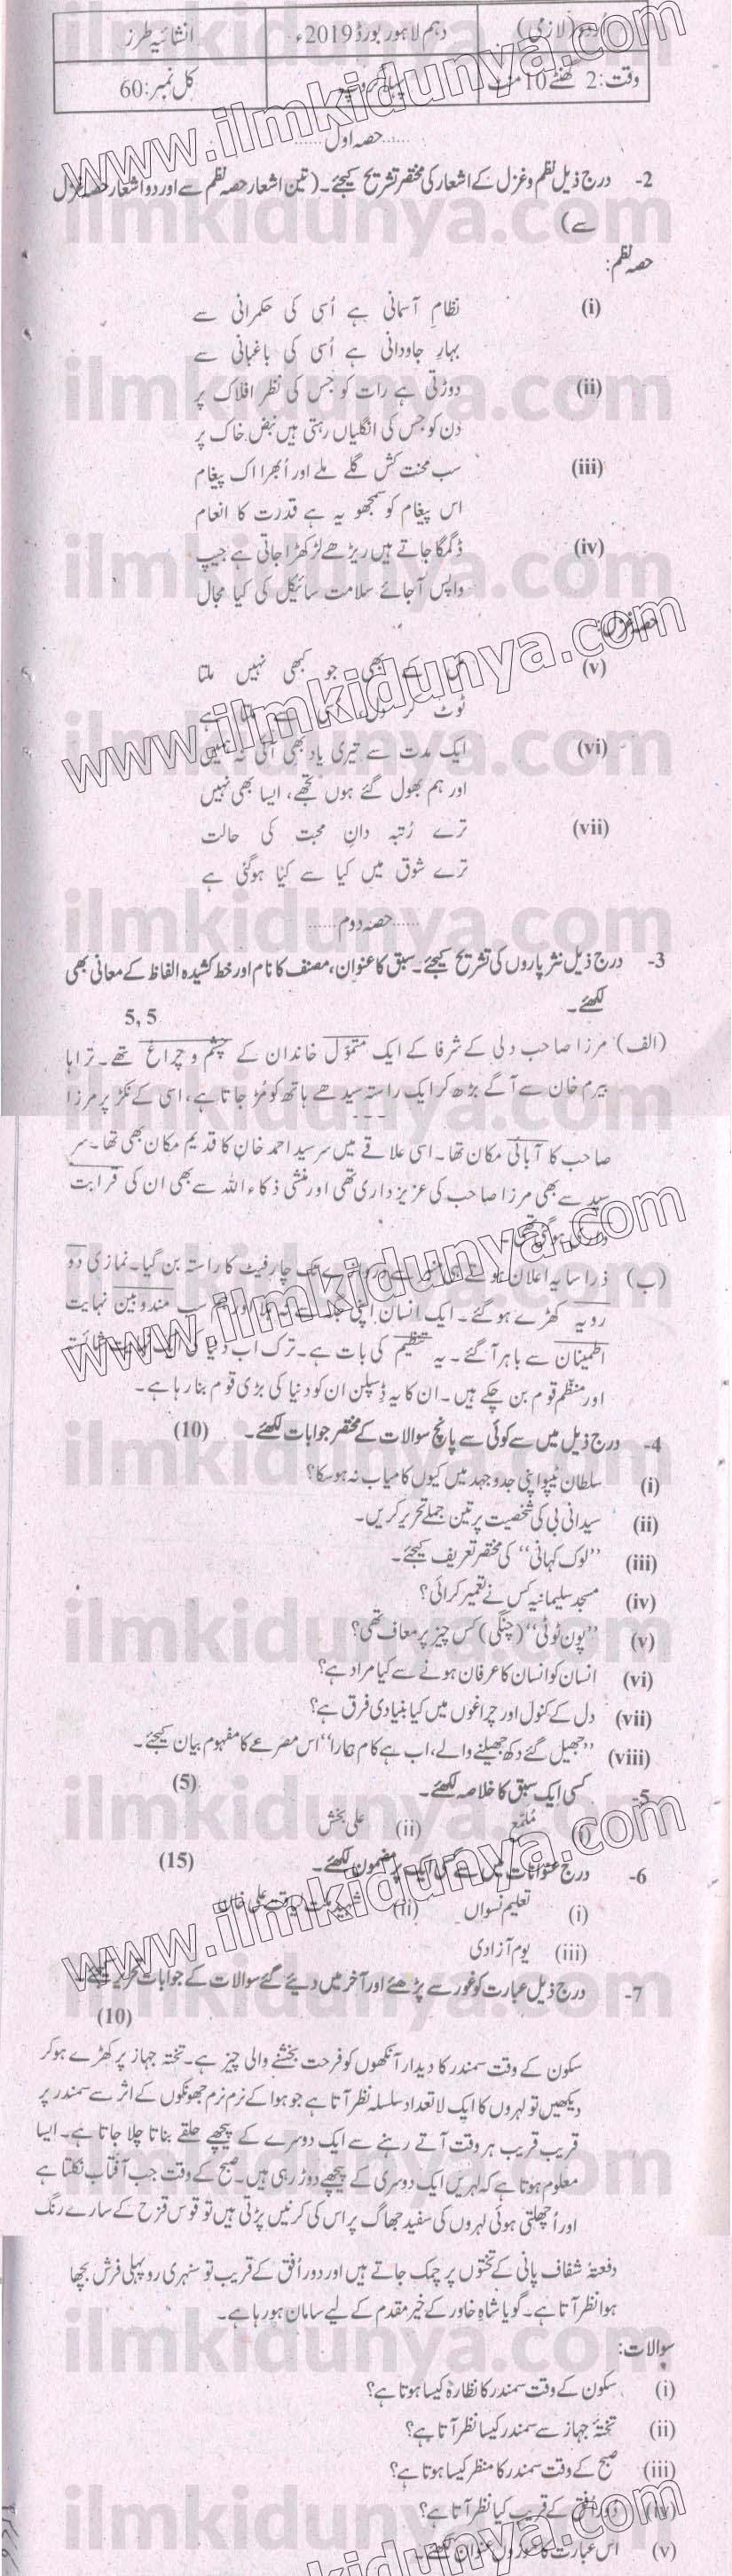 اُردو (لازمی) دہم لاہور بورڈ 2019ء انشائیہ طرز
وقت: 2 گھنٹے 10 منٹ کل نمبر: 60
......حصہ اول......
-2 درج ذیل نظم و غزل کے اشعار کی مختصر تشریح کیجئے۔ (تین اشعار حصہ نظم سے اور دو اشعار حصہ غزل
سے)
حصہ نظم:
(i) نظامِ آسمانی ہے اُسی کی حکمرانی سے
بہارِ جاودانی ہے اُسی کی باغبانی سے
(ii) دوڑتی ہے رات کو جس کی نظر افلاک پر
دن کو جس کی انگلیاں رہتی ہیں نبضِ خاک پر
(iii) سب محنت کش گلے ملے اور اُبھرا اک پیغام
اس پیغام کو سمجھو یہ ہے قدرت کا انعام
(iv) ڈگمگا جاتے ہیں ریڑھے لڑکھڑا جاتی ہے جیپ
واپس آجائے سلامت سائیکل کی کیا مجال
حصہ غزل:
(v) کے بھی جو کبھی نہیں ملتا
ٹوٹ کر
(vi) ایک مدت سے تیری یاد بھی آئی نہ ہمیں
اور ہم بھول گئے ہوں تجھے، ایسا بھی نہیں
(vii) ترے رُتبہ دانِ محبت کی حالت
ترے شوق میں کیا سے کیا ہوگئی ہے
......حصہ دوم......
-3 درج ذیل نثر پاروں کی تشریح کیجئے۔ سبق کا عنوان، مصنف کا نام اور خط کشیدہ الفاظ کے معانی بھی
لکھئے۔
5, 5
(الف) مرزا صاحب دلی کے شرفا کے ایک متموّل خاندان کے چشم و چراغ تھے۔ تراہا
بیرم خان سے آگے بڑھ کر ایک راستہ سیدھے ہاتھ کو مُڑ جاتا ہے، اسی کے نکڑ پر مرزا
صاحب کا آبائی مکان تھا۔ اسی علاقے میں سرسید احمد خان کا قدیم مکان بھی تھا۔ سر
سید سے بھی مرزا صاحب کی عزیز داری تھی اور منشی ذکاء اللہ سے بھی ان کی قرابت
داری ہوگئی تھی۔
(ب) ذرا سا یہ اعلان ہونے دروازے تک چار فیٹ کا راستہ بن گیا۔ نمازی دو
رویہ کھڑے ہوگئے۔ ایک انسان اپنی جگہ سے نہ ہلا اور ہم سب مندوبین نہایت
اطمینان سے باہر آگئے۔ یہ تنظیم کی بات ہے۔ ترک اب دنیا کی ایک
اور منظم قوم بن چکے ہیں۔ ان کا یہ ڈسپلن ان کو دنیا کی بڑی قوم بنا رہا ہے۔
-4 درج ذیل میں سے کوئی سے پانچ سوالات کے مختصر جوابات لکھئے۔ (10)
(i) سلطان ٹیپو اپنی جدوجہد میں کیوں کامیاب نہ ہوسکا؟
(ii) سیدانی بی کی شخصیت پر تین جملے تحریر کریں۔
(iii) ''لوک کہانی'' کی مختصر تعریف کیجئے۔
(iv) مسجد سلیمانیہ کس نے تعمیر کرائی؟
(v) ''پون ٹوٹی'' (چنگی) کس چیز پر معاف تھی؟
(vi) انسان کو انسان کا عرفان ہونے سے کیا مراد ہے؟
(vii) دل کے کنول اور چراغوں میں کیا بنیادی فرق ہے؟
(viii) ''جھیل گئے دکھ جھیلنے والے، اب ہے کام ہمارا'' اس مصرعے کا مفہوم بیان کیجئے۔
-5 کسی ایک سبق کا خلاصہ لکھئے۔ (5)
(i) مُلمّع (ii) علی بخش
-6 درج عنوانات میں سے کسی ایک پر مضمون لکھئے۔ (15)
(i) تعلیم نسواں (ii) شہیدِ ملت لیاقت علی خان
(iii) یوم آزادی
-7 درج ذیل عبارت کو غور سے پڑھئے اور آخر میں دیئے گئے سوالات کے جوابات تحریر کیجئے۔
(10)
سکون کے وقت سمندر کا دیدار آنکھوں کو فرحت بخشنے والی چیز ہے۔ تختہ جہاز پر کھڑے ہوکر
دیکھیں تو لہروں کا ایک لاتعداد سلسلہ نظر آتا ہے جو ہوا کے نرم نرم جھونکوں کے اثر سے سمندر پر
قریب قریب ہر وقت آتے رہنے سے ایک دوسرے کے پیچھے حلقے بناتا چلا جاتا ہے۔ ایسا
معلوم ہوتا ہے کہ لہریں ایک دوسری کے پیچھے دوڑ رہی ہیں۔ صبح کے وقت جب آفتاب نکلتا ہے
اور اُچھلتی ہوئی لہروں کی سفید جھاگ پر اس کی کرنیں پڑتی ہیں تو قوس قزح کے سارے رنگ
دفعتہً شفاف پانی کے تختوں پر چمک جاتے ہیں اور دور اُفق کے قریب تو سنہری روپہلی فرش بچھا
ہوا نظر آتا ہے۔ گویا شاہِ خاور کے خیر مقدم کے لیے سامان ہو رہا ہے۔
سوالات:
(i) سکون کے وقت سمندر کا نظارہ کیسا ہوتا ہے؟
(ii) تختۂ جہاز سے سمندر کیسا نظر آتا ہے؟
(iii) صبح کے وقت سمندر کا منظر کیسا ہوتا ہے؟
(iv) دور اُفق کے قریب کیا نظر آتا ہے؟
(v) اس عبارت کا موزوں عنوان لکھئے۔
www.ilmkidunya.com
ilmkidunya.com